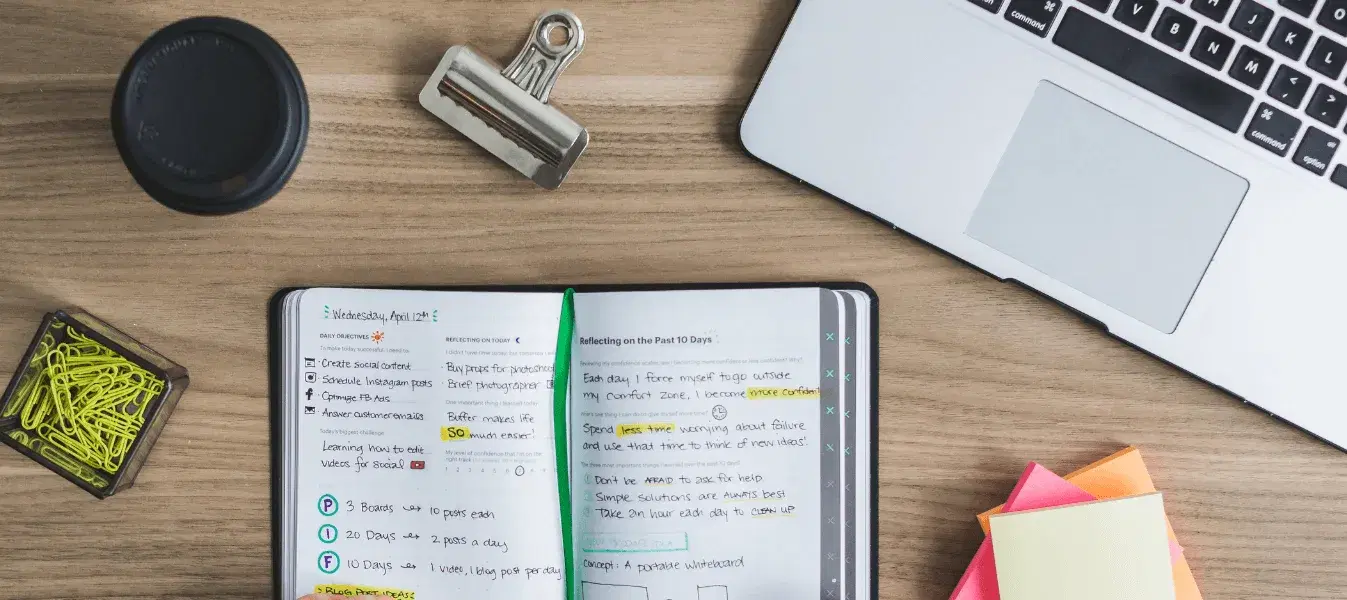 command
V
B
N
M
H
J
K
L
O
<
,
>
.
command
option
Wednesday, April 12th
DAILY OBJECTIVES
To make today successful, I need to:
Create social content
Schedule Instagram posts
Optimize FB Ads
Answer customer emails
Learning how to edit
videos for social
P 3 Boards → 10 posts each
I 20 Days → 2 posts a day
F 10 Days → 1 video, 1 blog post per day
> BLOG POST IDEAS:
REFLECTING ON TODAY
Buy props for photoshoot
Brief photographer
Buffer makes life
SO much easier!
Reflecting on the Past 10 Days
Each day I force myself to go outside
my comfort zone, I become more confident
Spend less time worrying about failure
and use that time to think of new ideas!
The three most important things I learned over the past 10 days:
1 Don't be AFRAID to ask for help
2 Simple solutions are ALWAYS best
3 Take an hour each day to CLEAN UP
Concept: A portable whiteboard